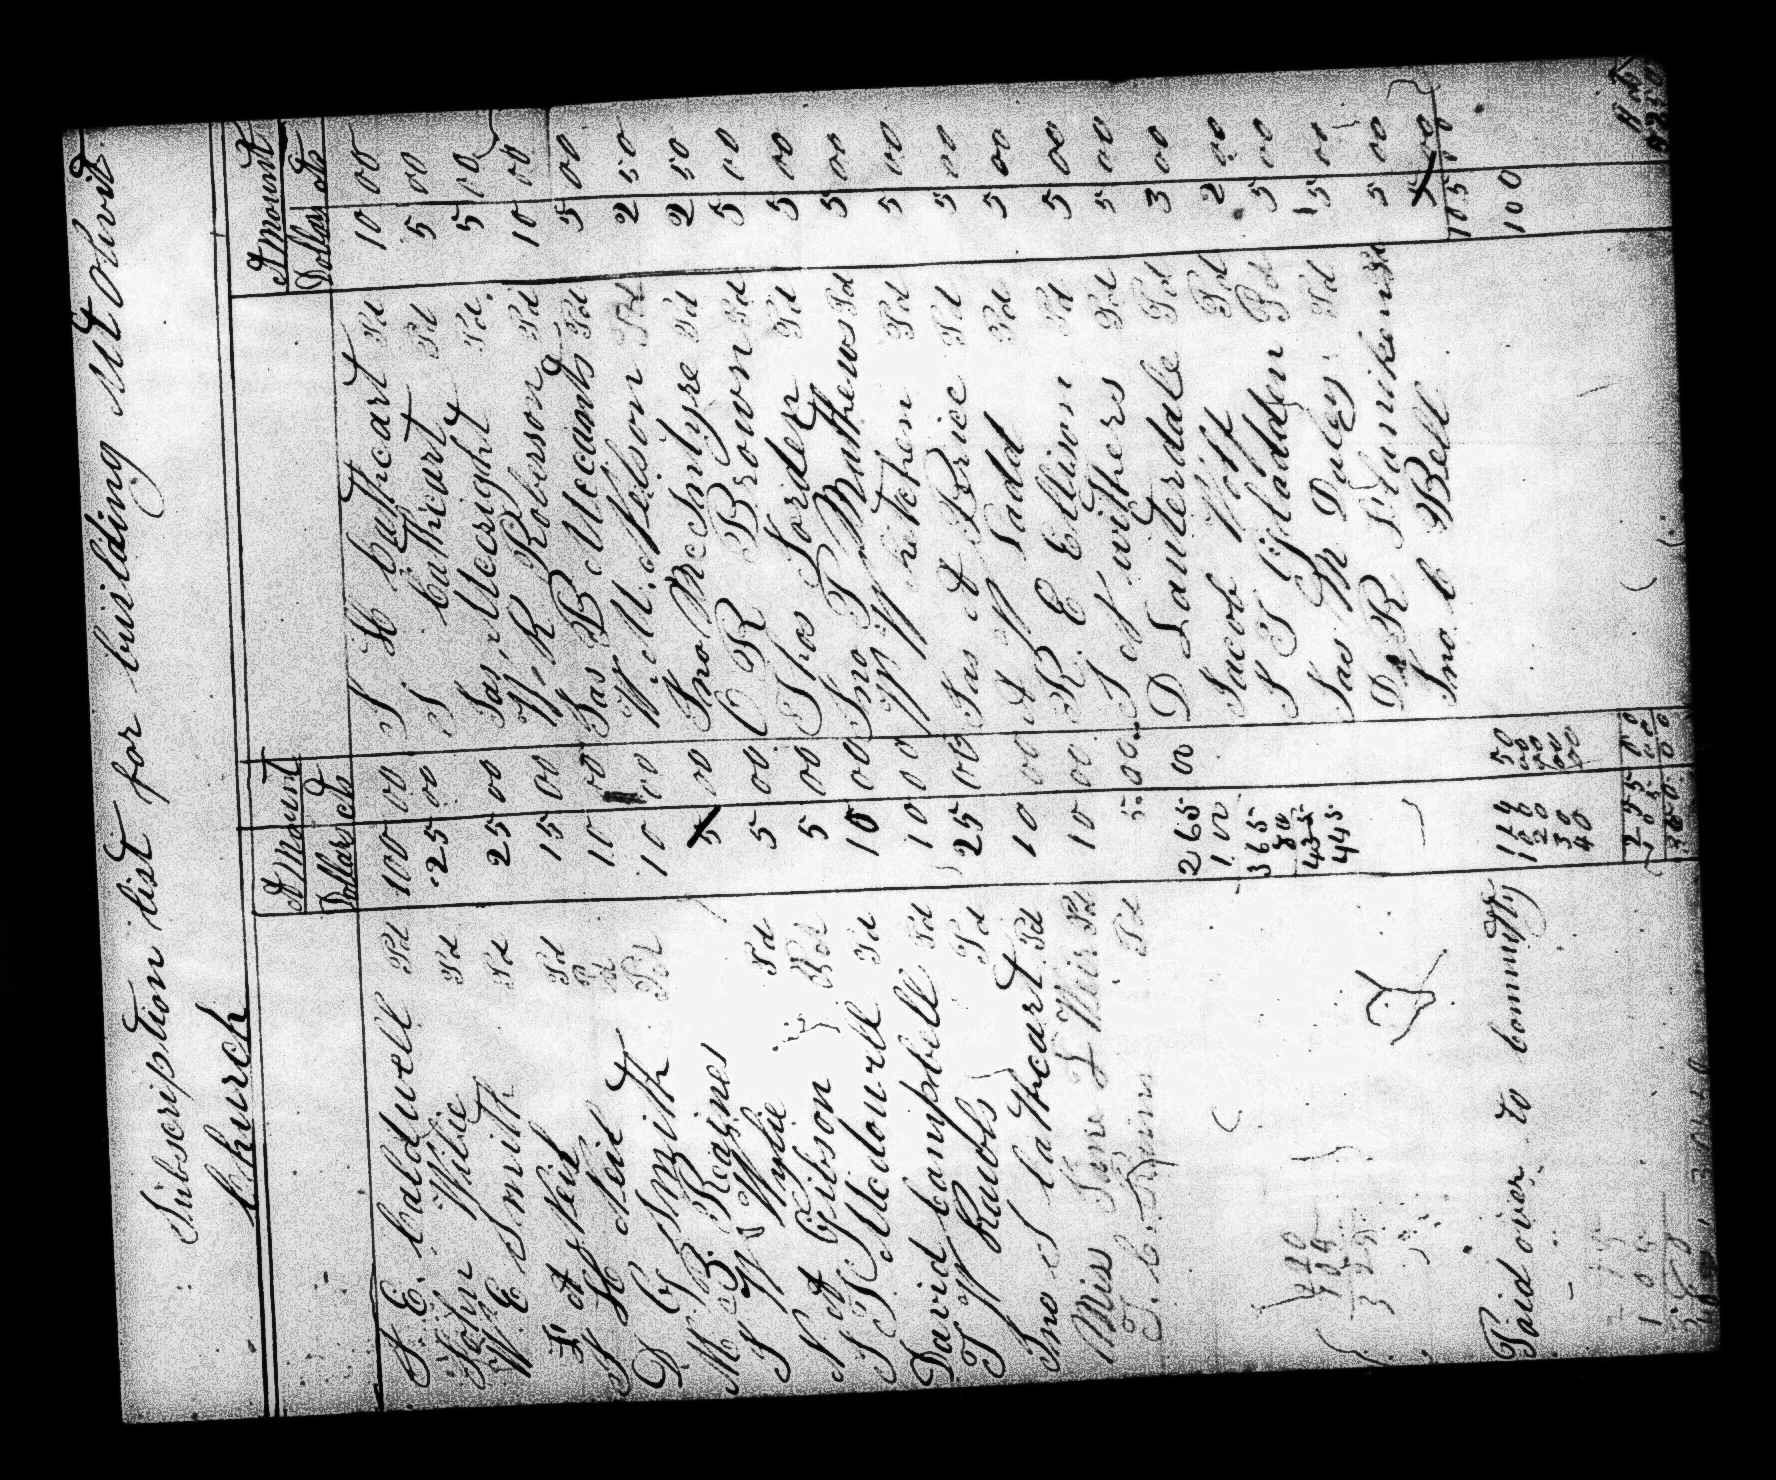 Subscription list for building Mt Olivit
Church
Amount
Dollars cts
J. E. Caldwell Pd 100 00
John Wilie Pd 25 00
W E Smith Pd 25 00
Pd 15 00
J H Neil Pd 10 00
D G Smith Pd 10 00
M B Reaines 5 00
J W Wylie Pd 5 00
N A Gibson Pd 5 00
J P Mcdowell Pd 10 00
David Campbell Pd 10 00
T W Rawls Pd 25 00
Jno S Cathcart Pd 10 00
Miss Jane L Weir Pd 10 00
Pd 5.00
265 00
100
365
80
435
445
Amount
Dollars cts
J H Cathcart Pd 10 00
J. Cathcart Pd 5 00
Jas Mccright Pd. 5 00
W R Roberson Pd 10 00
Jas B Mccants Pd 5 00
W. M. Nelson Pd 2 50
Jno McIntyre Pd 2 50
O R Brown Pd 5 00
Thos Jorden Pd 5 00
Jno P Mathews Pd 5 00
W W Ketchen Pd 5 00
Jas A Brice Pd 5 00
A W Ladd Pd 5 00
R E Ellison Pd 5 00
J N withers Pd 5 00
D Lauterdale Pd 3 00
Jacob Wolf Pd 2 00
J T Gladden Pd 5 00
Jas M Daley Pd 5 00
D R Flaniken Pd 5 00
Jno C Bell 5 00
105 00
100
Paid over to Committy
114 50
20 00
30 00
40 00